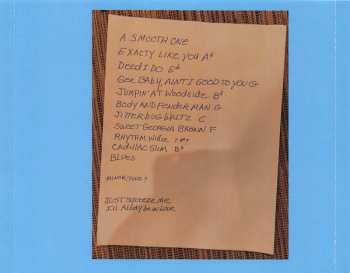 A SMOOTH ONE
EXACTLY LIKE YOU Ab
DEED I DO Eb
GEE BABY, AIN'T I GOOD TO YOU G
JUMPIN' AT WOODSIDE Bb
BODY AND FENDER MAN G
JITTERBUG WALTZ C
SWEET GEORGIA BROWN F
RHYTHM WILLIE
CADILLAC SLIM Bb
BLUES
JUST SQUEEZE ME
I'll Always be in Love